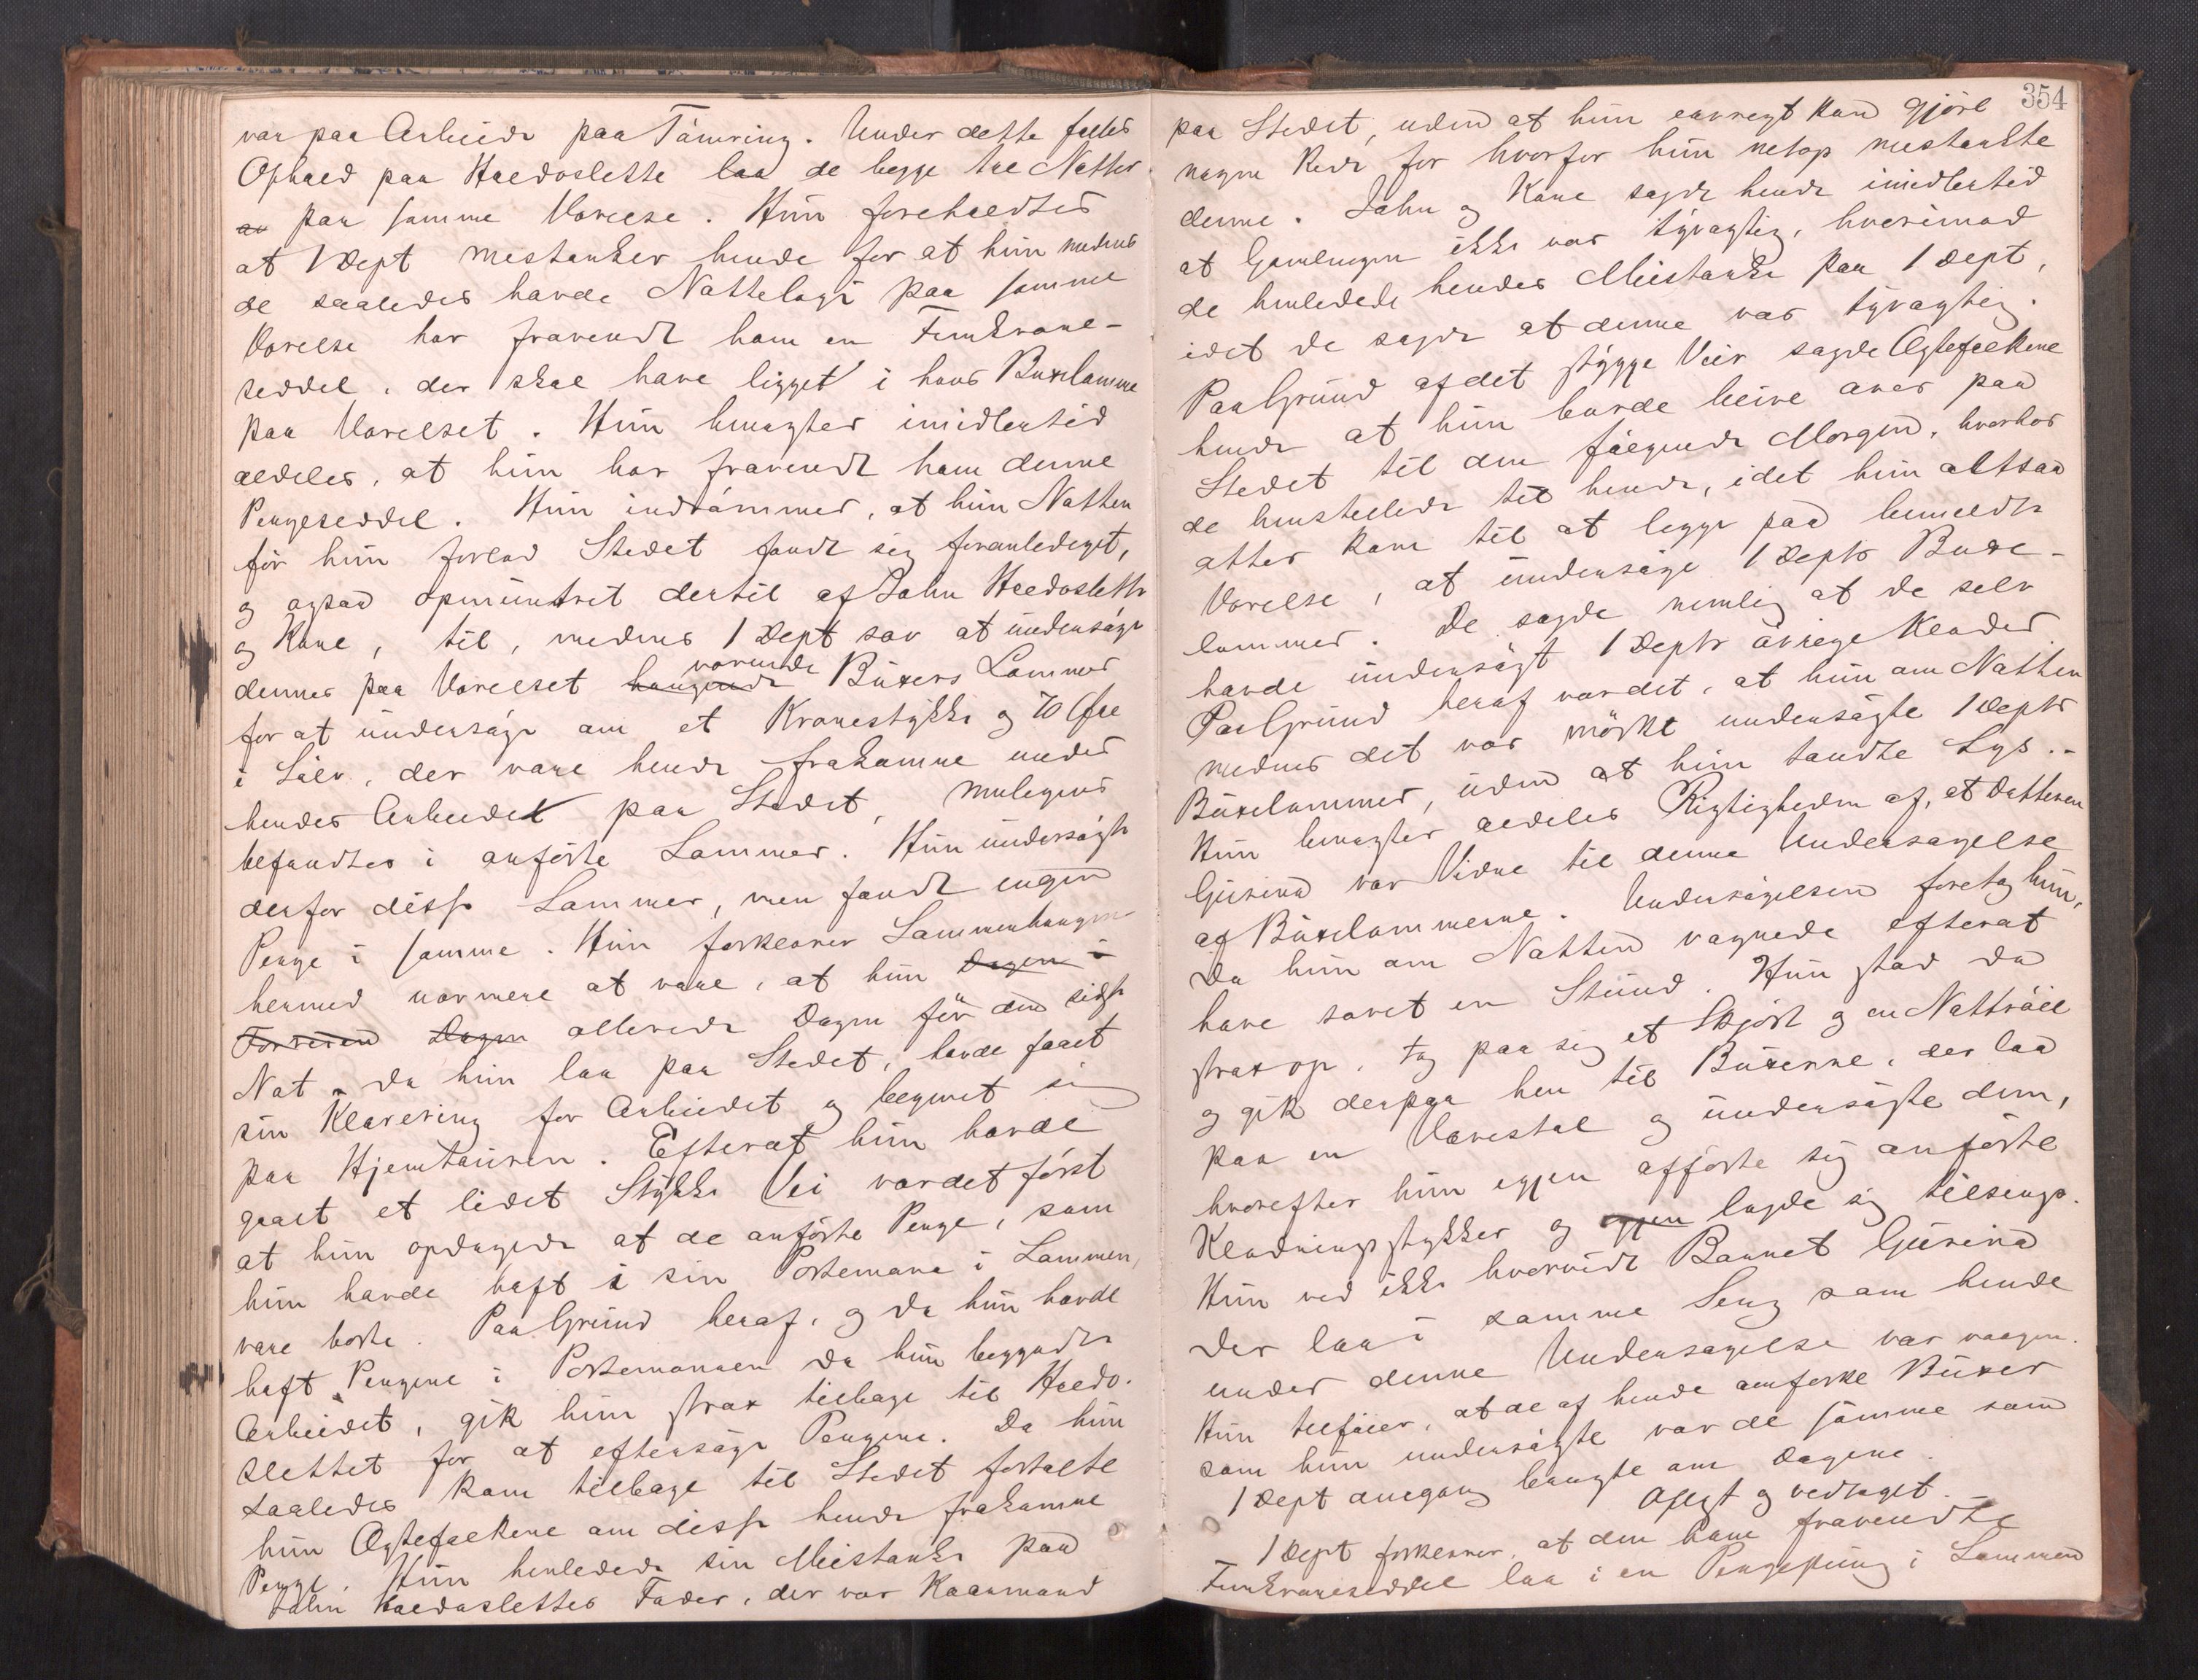 var paa Arbeide paa Tømring. Under dette fælles
Ophold paa Haldoslette laa de begge tre Nætter
av paa samme Værelse. Hun foreholdtes
at 1 Dept mistænker hende for at hun medens
de saaledes havde Natteloge paa samme
Værelse har fravendt ham en Femkrone-
seddel, der skal have ligget i hans Buxelomme
paa Værelset. Hun benegter imidlertid
aldeles, at hun har fravendt ham denne
Pengeseddel. Hun indrømmer, at hun Natten
før hun forlod Stedet fandt sig foranlediget,
og ogsaa opmuntret dertil af John Haldoslette
og Kone, til, medens 1 Dept sov at undersøge
dennes paa Værelset hængende værende Buxers Lommer
for at undersøge om et Kronestykke og 70 Øre
i Sølv, der vare hende frakomne under
hendes Arbeidet paa Stedet, muligens
befandtes i anførte Lommer. Hun undersøgte
derfor disse Lommer, men fandt ingen
Penge i samme. Hun forklarer Sammenhængen
hermed nærmere at være, at hun Dagen i
Forveien Dagen allerede Dagen før den sidste
Nat, da hun laa paa Stedet, havde faaet
sin Klarering for Arbeidet og begivet sig
paa Hjemtouren. Efterat hun havde
gaaet et lidet Stykke Vei var det først
at hun opdagede at de anførte Penge, som
hun havde haft i sin Portemonæ i Lommen,
vare borte. Paa Grund heraf, og da hun havde
haft Pengene i Portemonnæen da hun begyndte
Arbeidet, gik hun strax tilbage til Haldo-
slettet for at eftersøge Pengene. Da hun
saaledes kom tilbage til Stedet fortalte
hun Ægtefolkene om disse hende frakomne
Penge. Hun henledede sin Mistanke paa
John Haldoslettes Fader, der var Kaarmand
354
paa Stedet, uden at hun eavregt kan gjøre
nogen Rede for hvorfor hun netop mistænkte
denne. John og Kone sagde hende imidlertid
at Gamlingen ikke var tyvagtig, hvorimod
de henledede hendes Mistanke paa 1 Dept,
idet de sagde at denne var tyvagtig.
Paa Grund af det stygge Veir sagde Ægtefolkene
hende at hun burde beive over paa
Stedet til den følgende Morgen, hvorhos
de henstillede til hende, idet hun altsaa
atter kom til at ligge paa bemeldte
Værelse, at undersøge 1 Depts Buxe-
lommer. De sagde nemlig at de selv
havde undersøgt 1 Depts øvrige Klæder.
Paa Grund heraf var det, at hun om Natten
medens det var mørkt undersøgte 1 Depts
Buxelommer, uden at hun tændte Lys.-
Hun benegter aldeles Rigtigheden af, at Datteren
Gurina var Vidne til denne Undersøgelse
af Buxelommerne. Undersøgelsen foretog hun,
da hun om Natten vagnede efterat
have sovet en Stund. Hun stod da
strax op, tog paa sig et Skjørt og en Nattrøie
og gik derpaa hen til Buxerne, der laa
paa en Vævestol og undersøgte dem,
hvorefter hun igjen afførte sig anførte
Klædningsstykker og igjen lagde sig tilsengs.
Hun ved ikke hvorvidt Barnet Gurina
der laa i samme Seng som hende
under denne Undersøgelse var vaagen.
Hun tilføier, at de af hende omforkl Buxer
som hun undersøgte var de samme som
1 Dept dengang brugte om Dagene.
Oplæst og vedtaget.
1 Dept forklarer, at den ham fravendte
Femkroneseddel laa i en Pengepung i Lommen